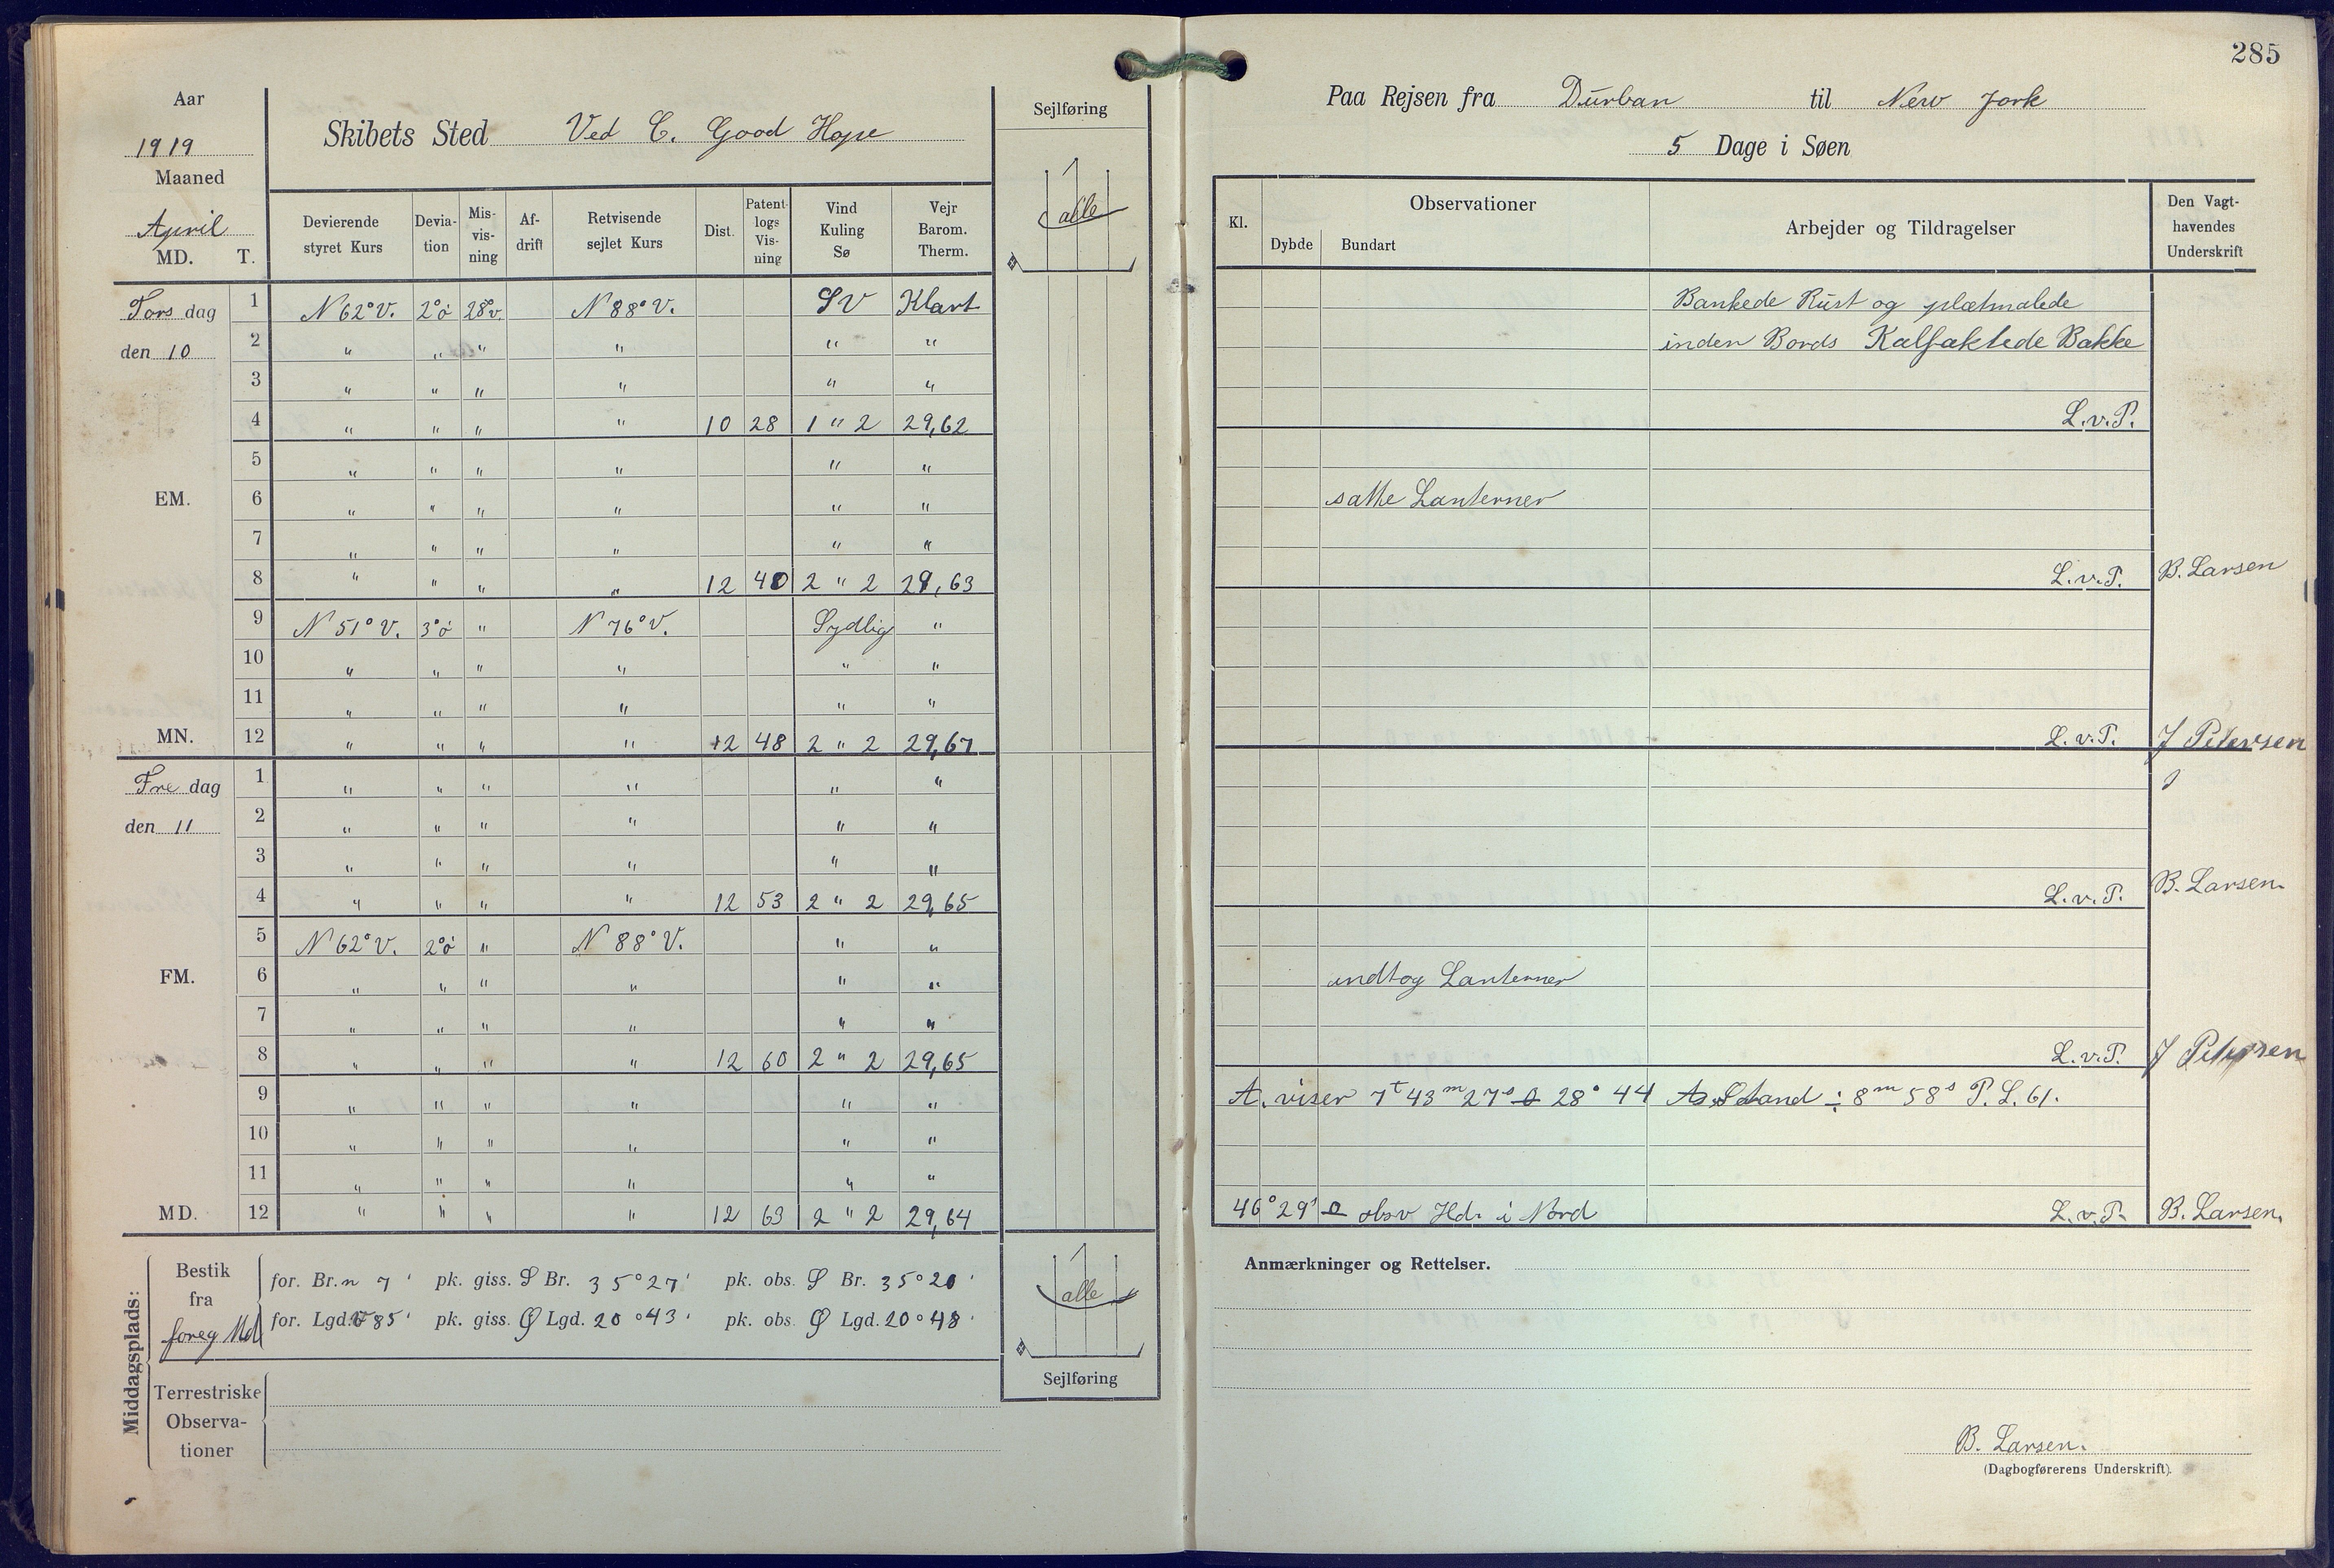 Aar
1919
Maaned
April
MD. T.
Skibets Sted Ved C. Good Hope
Sejlføring
alle
Devierende styret Kurs | Devia-tion | Mis-vis-ning | Af-drift | Retvisende sejlet Kurs | Dist. | Patent-logs Vis-ning | Vind Kuling Sø | Vejr Barom. Therm.
Tors dag 1 N 62° V. 2° ö 28° v. N 88° V. SV Klart
den 10 2 " " " " " "
3 " " " " " "
4 " " " " 10 28 1 " 2 29,62
5 " " " " " "
EM. 6 " " " " " "
7 " " " " " "
8 " " " " 12 40 2 " 2 29,63
9 N 51° V. 3° ö " N 76° V. Sydlig "
10 " " " " " "
11 " " " " " "
MN. 12 " " " " 12 48 2 " 2 29,67
Fre dag 1 " " " " " "
den 11 2 " " " " " "
3 " " " " " "
4 " " " " 12 53 2 " 2 29,65
5 N 62° V. 2° ö " N 88° V. " "
FM. 6 " " " " " "
7 " " " " " "
8 " " " " 12 60 2 " 2 29,65
9 " " " " " "
10 " " " " " "
11 " " " " " "
MD. 12 " " " " 12 63 2 " 2 29,64
Middagsplads:
Bestik fra foreg Md
for. Br. n 7' pk. giss. S Br. 35° 27' pk. obs. S Br. 35° 20'
for. Lgd. 85' pk. giss. Ø Lgd. 20° 43' pk. obs. Ø Lgd. 20° 48'
alle
Sejlføring
Terrestriske
Observa-
tioner
285
Paa Rejsen fra Durban til New York
5 Dage i Søen
Kl. | Observationer | Dybde | Bundart | Arbejder og Tildragelser | Den Vagt-havendes Underskrift
Bankede Rust og pletmalede
inden Bords Kalfaktede Bakke
L.v.P.
satte Lanterner
L.v.P. B. Larsen
L.v.P. J Petersen
L.v.P. B. Larsen.
indtog Lanterner
L.v.P. J Petersen
A. viser 7t 43m 27s 28° 44 Stand ÷ 8m 58s P. L. 61.
46° 29' obsv Hd. i Nord L.v.P. B. Larsen.
Anmærkninger og Rettelser.
B. Larsen.
(Dagbogførerens Underskrift).